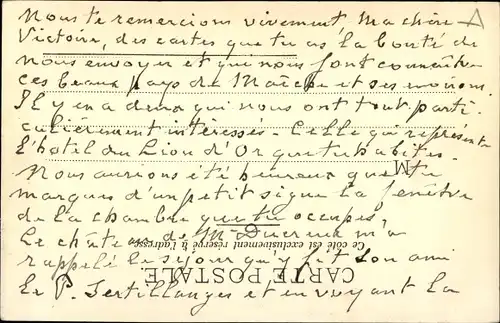 Nous te remercions vivement, Ma chère
Victoire, des cartes que tu as la bonté de
nous envoyer et qui nous font connaître
ces beaux pays de Maîche et ses environs.
Il y en a deux qui nous ont tout parti-
culièrement intéressés - Celle qui représente
l'hôtel du Lion d'Or que tu habites.
Nous aurions été heureux que tu
marques d'un petit signe la fenêtre
de la chambre que tu occupes,
Le château de M. Ducreux m'a
rappelé le séjour qu'y fit son ami
le P. Sertillanges et en voyant la
M
Ce côté est exclusivement réservé à l'adresse
CARTE POSTALE